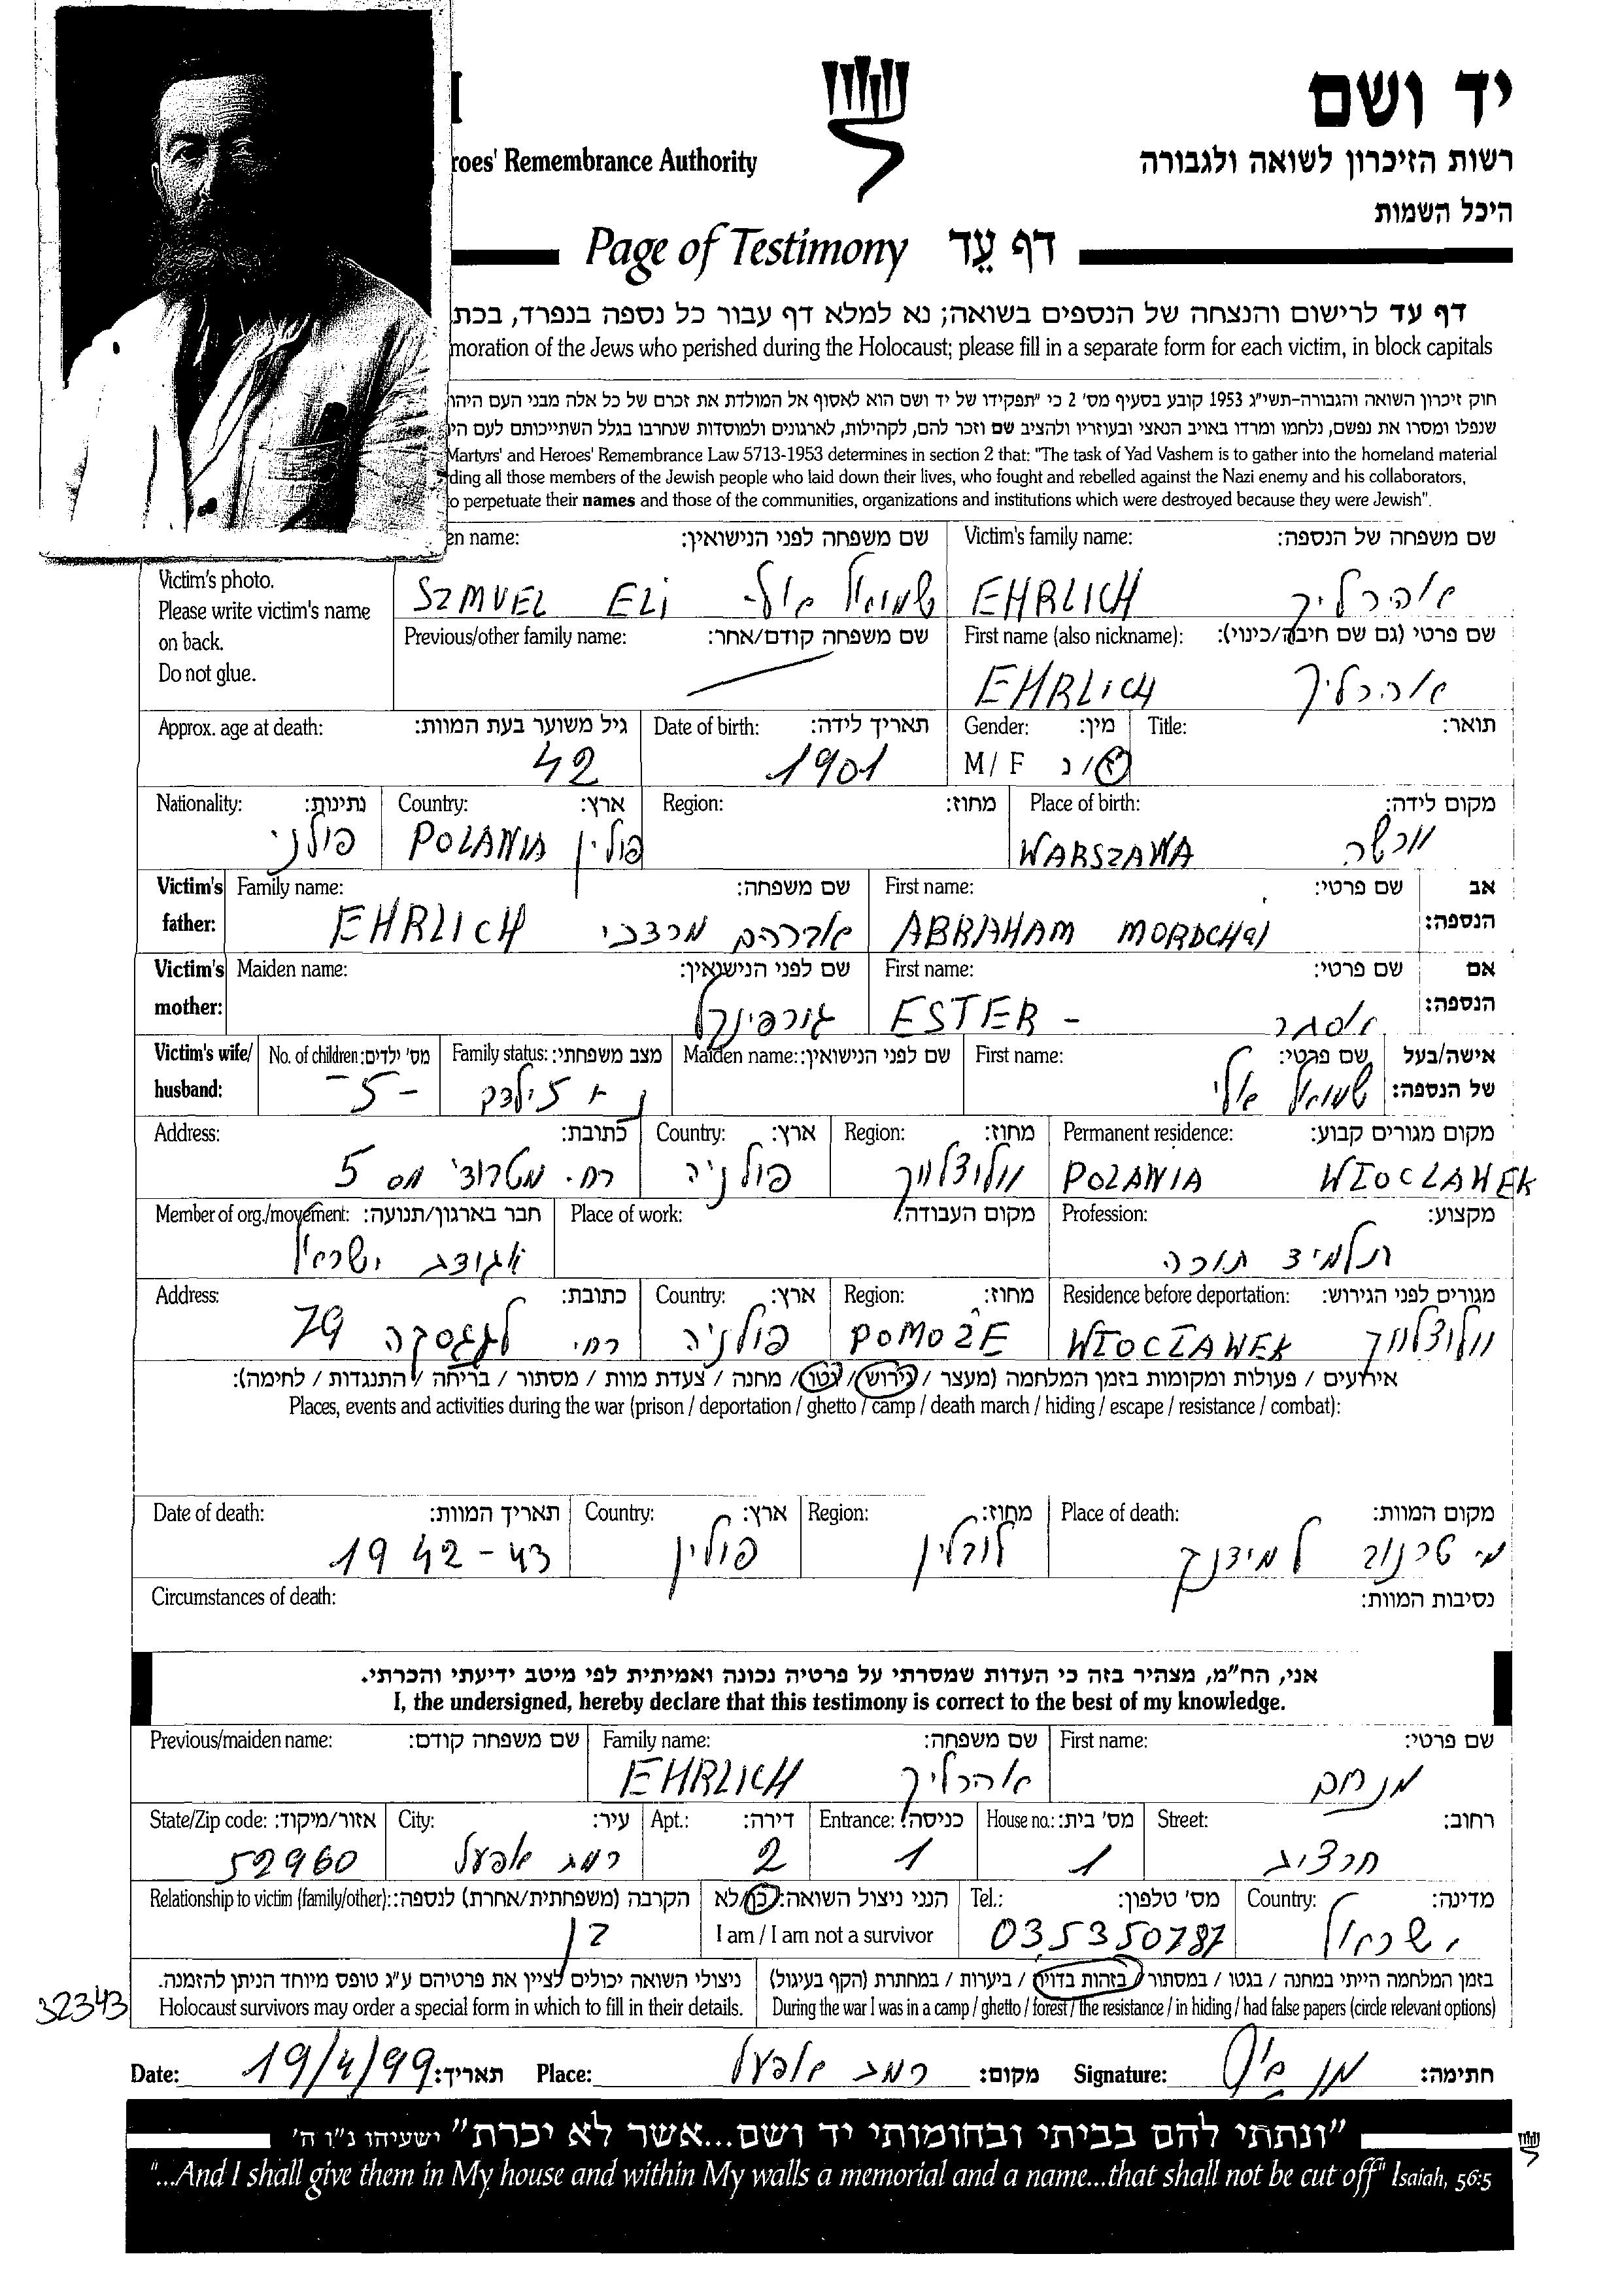 יד ושם
roes' Remembrance Authority
רשות הזיכרון לשואה ולגבורה
היכל השמות
Page of Testimony דף עֵד
דף עד לרישום והנצחה של הנספים בשואה; נא למלא דף עבור כל נספה בנפרד, בכת
moration of the Jews who perished during the Holocaust; please fill in a separate form for each victim, in block capitals
חוק זיכרון השואה והגבורה-תשי"ג 1953 קובע בסעיף מס' 2 כי "תפקידו של יד ושם הוא לאסוף אל המולדת את זכרם של כל אלה מבני העם היהו
שנפלו ומסרו את נפשם, נלחמו ומרדו באויב הנאצי ובעוזריו ולהציב שם וזכר להם, לקהילות, לארגונים ולמוסדות שנחרבו בגלל השתייכותם לעם הי
Martyrs' and Heroes' Remembrance Law 5713-1953 determines in section 2 that: "The task of Yad Vashem is to gather into the homeland material
ding all those members of the Jewish people who laid down their lives, who fought and rebelled against the Nazi enemy and his collaborators,
o perpetuate their names and those of the communities, organizations and institutions which were destroyed because they were Jewish".
en name: שם משפחה לפני הנישואין: Victim's family name: שם משפחה של הנספה:
SZMUEL ELi שמואל אלי EHRLICH אהרליך
Victim's photo.
Please write victim's name
on back.
Do not glue.
Previous/other family name: שם משפחה קודם/אחר: First name (also nickname): שם פרטי (גם שם חיבה/כינוי):
EHRLICH אהרליך
Approx. age at death: גיל משוער בעת המוות: Date of birth: תאריך לידה: Gender: מין: Title: תואר:
42 1901 M / F ז/נ
Nationality: נתינות: Country: ארץ: Region: מחוז: Place of birth: מקום לידה:
פולני POLANIA פולין WARSZAWA וורשה
Victim's father: Family name: שם משפחה: First name: שם פרטי: אב הנספה:
EHRLICH אברהם מרדכי ABRAHAM MORDCHAI
Victim's mother: Maiden name: שם לפני הנישואין: First name: שם פרטי: אם הנספה:
גורפינקל ESTER - אסתר
Victim's wife/ husband: No. of children: מס' ילדים: Family status: מצב משפחתי: Maiden name: שם לפני הנישואין: First name: שם פרטי: אישה/בעל של הנספה:
-5- נ + 5 ילדים שמואל אלי
Address: כתובת: Country: ארץ: Region: מחוז: Permanent residence: מקום מגורים קבוע:
5 פולניה וולוצלווק POLANIA WŁOCLAWEK
Member of org./movement: חבר בארגון/תנועה: Place of work: מקום העבודה: Profession: מקצוע:
אגודת ישראל תלמיד תורה
Address: כתובת: Country: ארץ: Region: מחוז: Residence before deportation: מגורים לפני הגירוש:
79 פולניה POMOŻE WŁOCŁAWEK וולוצלווק
אירועים / פעולות ומקומות בזמן המלחמה (מעצר / גירוש / גטו / מחנה / צעדת מוות / מסתור / בריחה / התנגדות / לחימה):
Places, events and activities during the war (prison / deportation / ghetto / camp / death march / hiding / escape / resistance / combat):
Date of death: תאריך המוות: Country: ארץ: Region: מחוז: Place of death: מקום המוות:
1942-43 פולין לובלין
Circumstances of death: נסיבות המוות:
אני, הח"מ, מצהיר בזה כי העדות שמסרתי על פרטיה נכונה ואמיתית לפי מיטב ידיעתי והכרתי.
I, the undersigned, hereby declare that this testimony is correct to the best of my knowledge.
Previous/maiden name: שם משפחה קודם: Family name: שם משפחה: First name: שם פרטי:
EHRLICH אהרליך מנחם
State/Zip code: אזור/מיקוד: City: עיר: Apt.: דירה: Entrance: כניסה: House no.: מס' בית: Street: רחוב:
52960 רמת אפעל 2 1 1 חרצית
Relationship to victim (family/other): הקרבה (משפחתית/אחרת) לנספה: הנני ניצול השואה: כן/לא Tel.: מס' טלפון: Country: מדינה:
בן I am / I am not a survivor 035350787 ישראל
ניצולי השואה יכולים לציין את פרטיהם ע"ג טופס מיוחד הניתן להזמנה. בזמן המלחמה הייתי במחנה / בגטו / במסתור / בזהות בדויה / ביערות / במחתרת (הקף בעיגול)
32343 Holocaust survivors may order a special form in which to fill in their details. During the war I was in a camp / ghetto / forest / the resistance / in hiding / had false papers (circle relevant options)
Date: 19/4/99 תאריך: Place: רמת אפעל מקום: Signature: חתימה:
"ונתתי להם בביתי ובחומותי יד ושם...אשר לא יכרת" ישעיהו נ"ו ה'
"...And I shall give them in My house and within My walls a memorial and a name...that shall not be cut off" Isaiah, 56:5